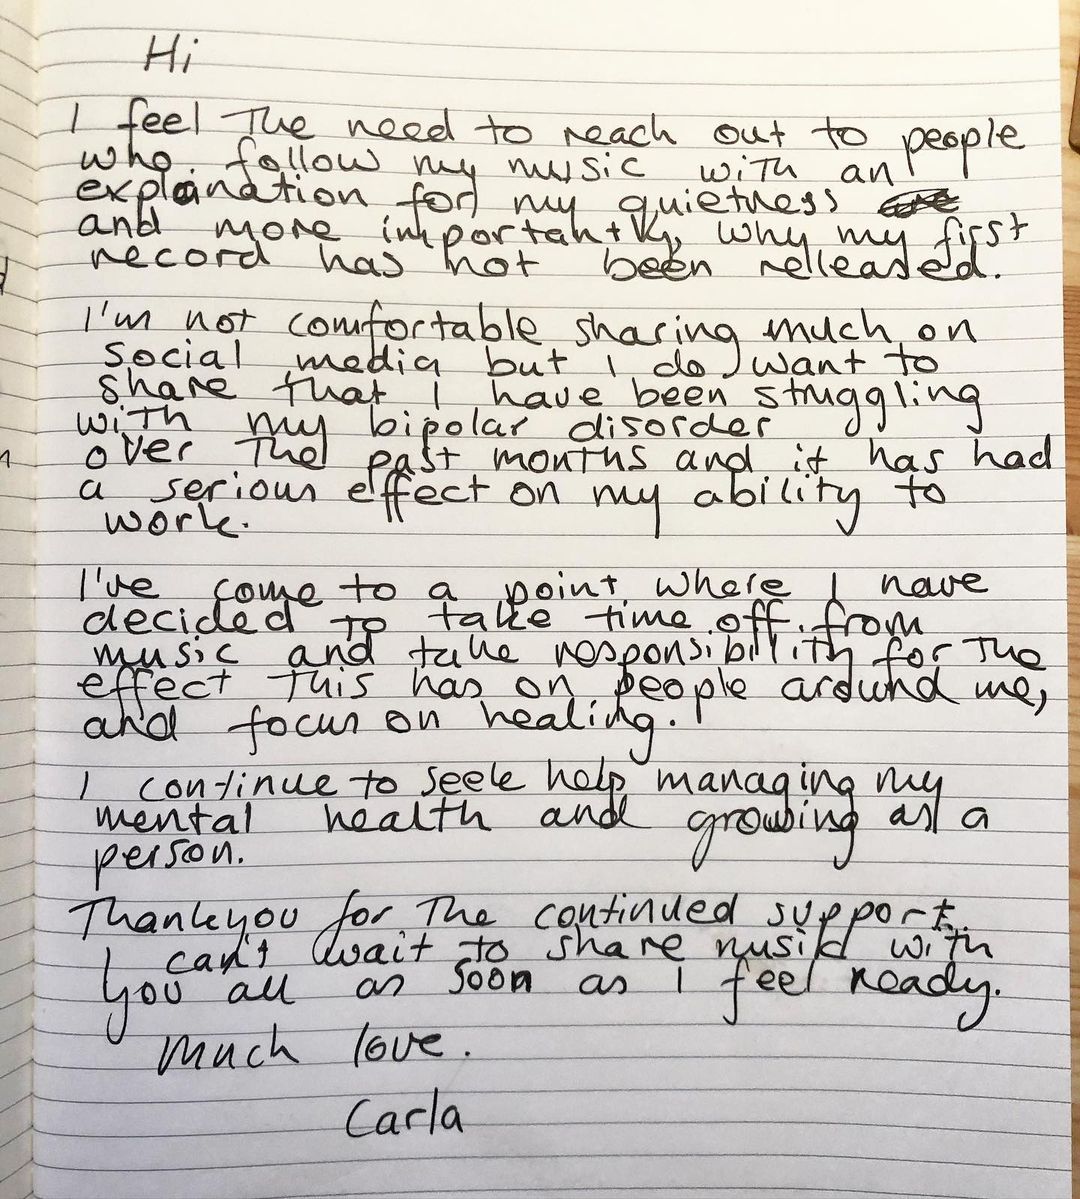 Hi
I feel The need to reach out to people
who follow my music with an
explaination for my quietness
and more importantly, why my first
record has not been relleased.
I'm not comfortable sharing much on
social media but I do want to
share that I have been struggling
with my bipolar disorder
over The past months and it has had
a serious effect on my ability to
work.
I've come to a point where I have
decided to take time off from
music and take responsibility for The
effect This has on people around me,
and focus on healing.
I continue to seek help managing my
mental health and growing as a
person.
Thankyou for The continued support.
I can't wait to share music with
you all as soon as I feel ready.
Much love.
Carla